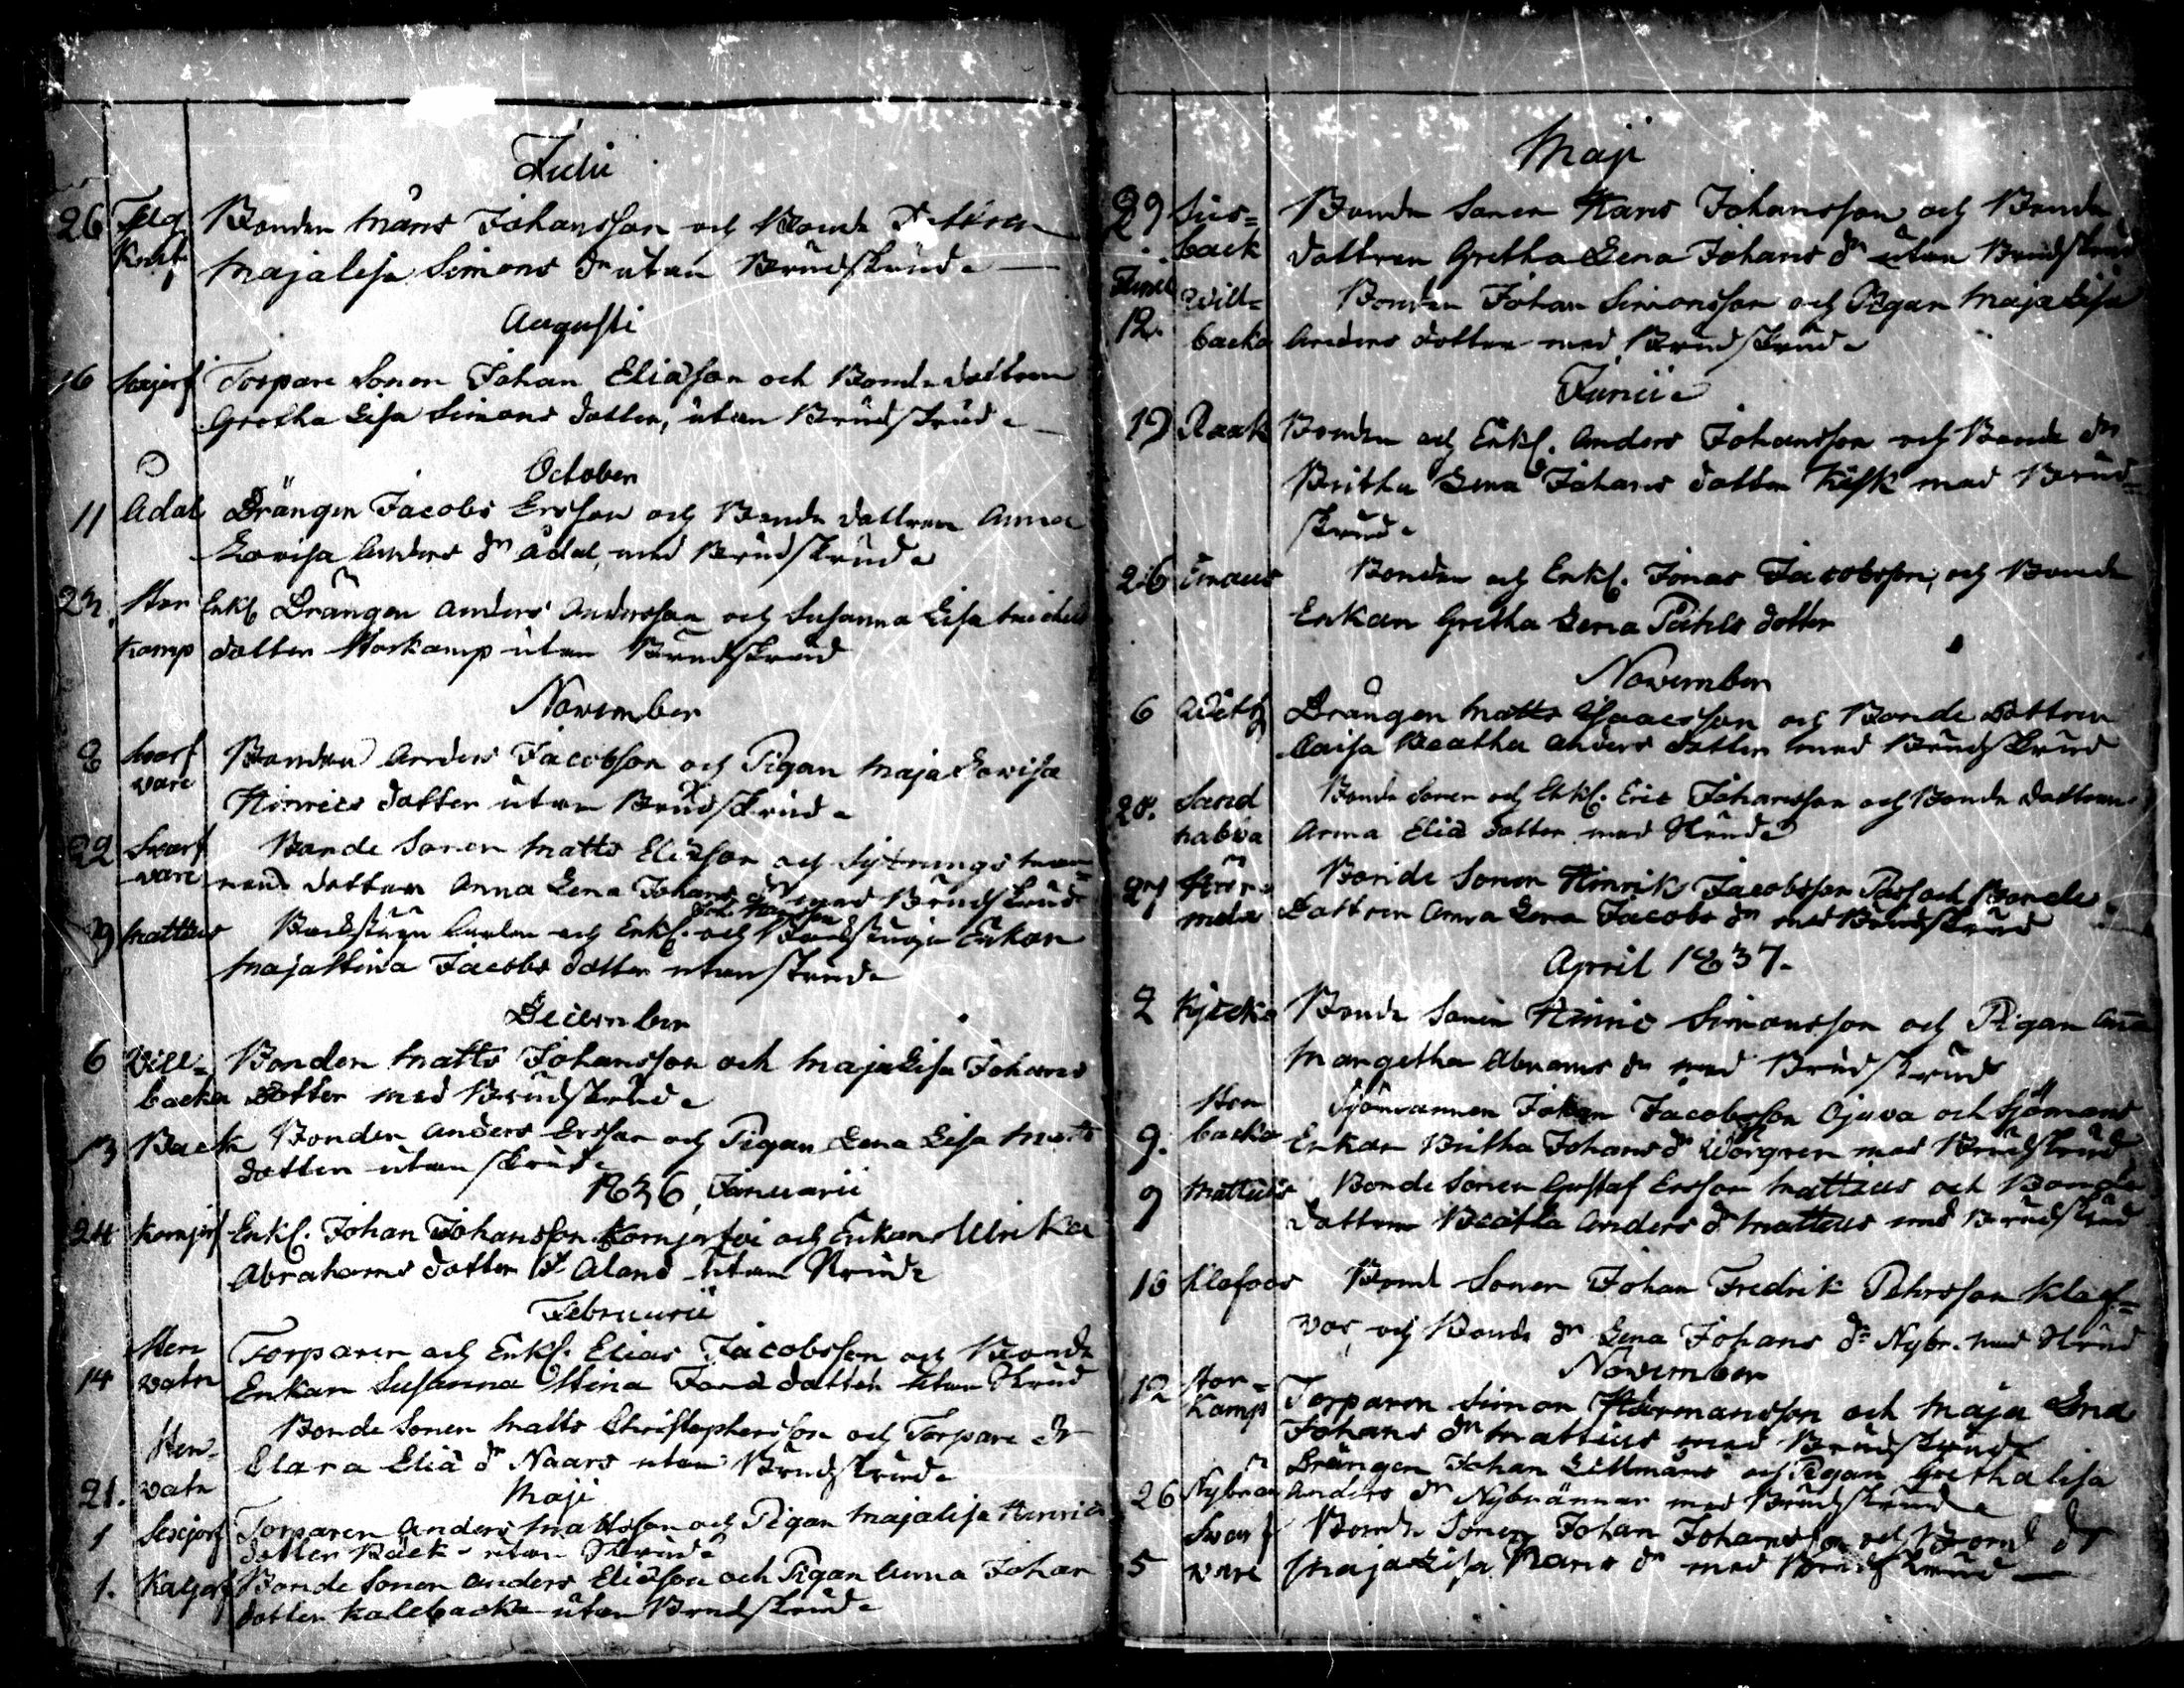 Julii
26 Bonden Måns Johansson och Bonde Dottren
Majalisa Simons dr utan Brudskrud
Augusti
16 Torpare Sonen Johan Eliasson och Bonde dottren
Gretha Lisa Simons dotter, utan Brudskrud
October
11 Ådal Drängen Jacob Ersson och Bonde dottren Anna
Lovisa Anders dr Ådal, med Brudskrud
Stor Enkl Drängen Anders Andersson och Susanna Lisa Michels
kamp dotter Storkamp utan Brudskrud
November
8 Svart Bonden Anders Jacobsson och Pigan Maja Lovisa
vare Hinrics dotter utan Brudskrud
22 Svart Bonde Sonen Matts Eliasson och Sytnings man-
vare nens dotter Anna Lena Johans dr med Brudskrud
Mattus Backstugu Karlen och Enkl. och Backstugu Enkan
Majastina Jacobs dotter utan skrud
December
6 Vill- Bonden Matts Johansson och Maja Lisa Johans
backa Dotter med Brudskrud
13 Back Bonden Anders Ersson och Pigan Lena Lisa Matts
dotter utan skrud
1836, Januarii
24 Kornjerf Enkl. Johan Johansson Kornjerfvi och Enkan Ulrika
Abrahams dotter utan Skrud
Februarii
Sten Torparen och Enkl. Elias Jacobsson och Bonde
14 vatn Enkan Susanna Stina dotter utan Skrud
Sten- Bonde Sonen Matts Christophersson och Torpare dr
Clara Elia dr Naars utan Brudskrud
21. vatn Maji
1 Sexjerf Torparen Anders Mattsson och Pigan Majalisa Henrics
dotter Back utan Skrud
1. Bonde Sonen Anders Eliasson och Pigan Anna Johan
dotter Kaleback utan Brudskrud
Maji
29 Bonde Sonen Hans Johansson och Bonde
back dottren Gretha Lena Johans dr utan Brudskrud
Vill- Bonden Johan Simonsson och Pigan Maja Lisa
12. backa Anders dotter med Brudskrud
Junii
19 Raak Bonden och Enkl. Anders Johansson och Bonde dr
Britha Lena Johans dotter Kisk med Brud-
skrud
26 Emaus Bonden och Enkl. Jonas Jacobsson, och Bonde
Enkan Gretha Lena Pehrs dotter
November
6 Drängen Matts Isaacsson och Bonde Dottren
Caisa Beatha Anders dotter med Brudskrud
20. Sand Bonde Sonen och Enkl. Eric Johansson och Bonde dottren
nabba Anna Elia dotter med Skrud
27 Ström- Bonde Sonen Hinrik Jacobsson Pass och Bonde
mela Dottren Anna Lena Jacobs dr med Brudskrud
April 1837.
2 Bonde Sonen Hinric Simonsson och Pigan Anna
Margetha Abrams dr med Brudskrud
Sten Sjömannen Johan Jacobsson Ojava och Sjömans
9. backa Enkan Britha Johans dr Wörgren med Brudskrud
9 Mattus Bonde Sonen Gustaf Ersson Mattus och Bonde
dottren Beatha Anders dr Mattus med Brudskrud
16 Klafvos Bond Sonen Johan Fredrik Pehrsson Klaf-
vos, och Bonde dr Lena Johans dr Nybr. med Skrud
November
12 Stor- Torparen Simon Hermansson och Maja Lena
kamp Johans dr Mattus med Brudskrud
Drängen Johan Lillmåns och Pigan Gretha Lisa
26 Nybrän Anders dr Nybrännar med Brudskrud
Svart Bonde Sonen Johan Johansson och Bond dr
5 vare Maja Lisa Hans dr med Brudskrud